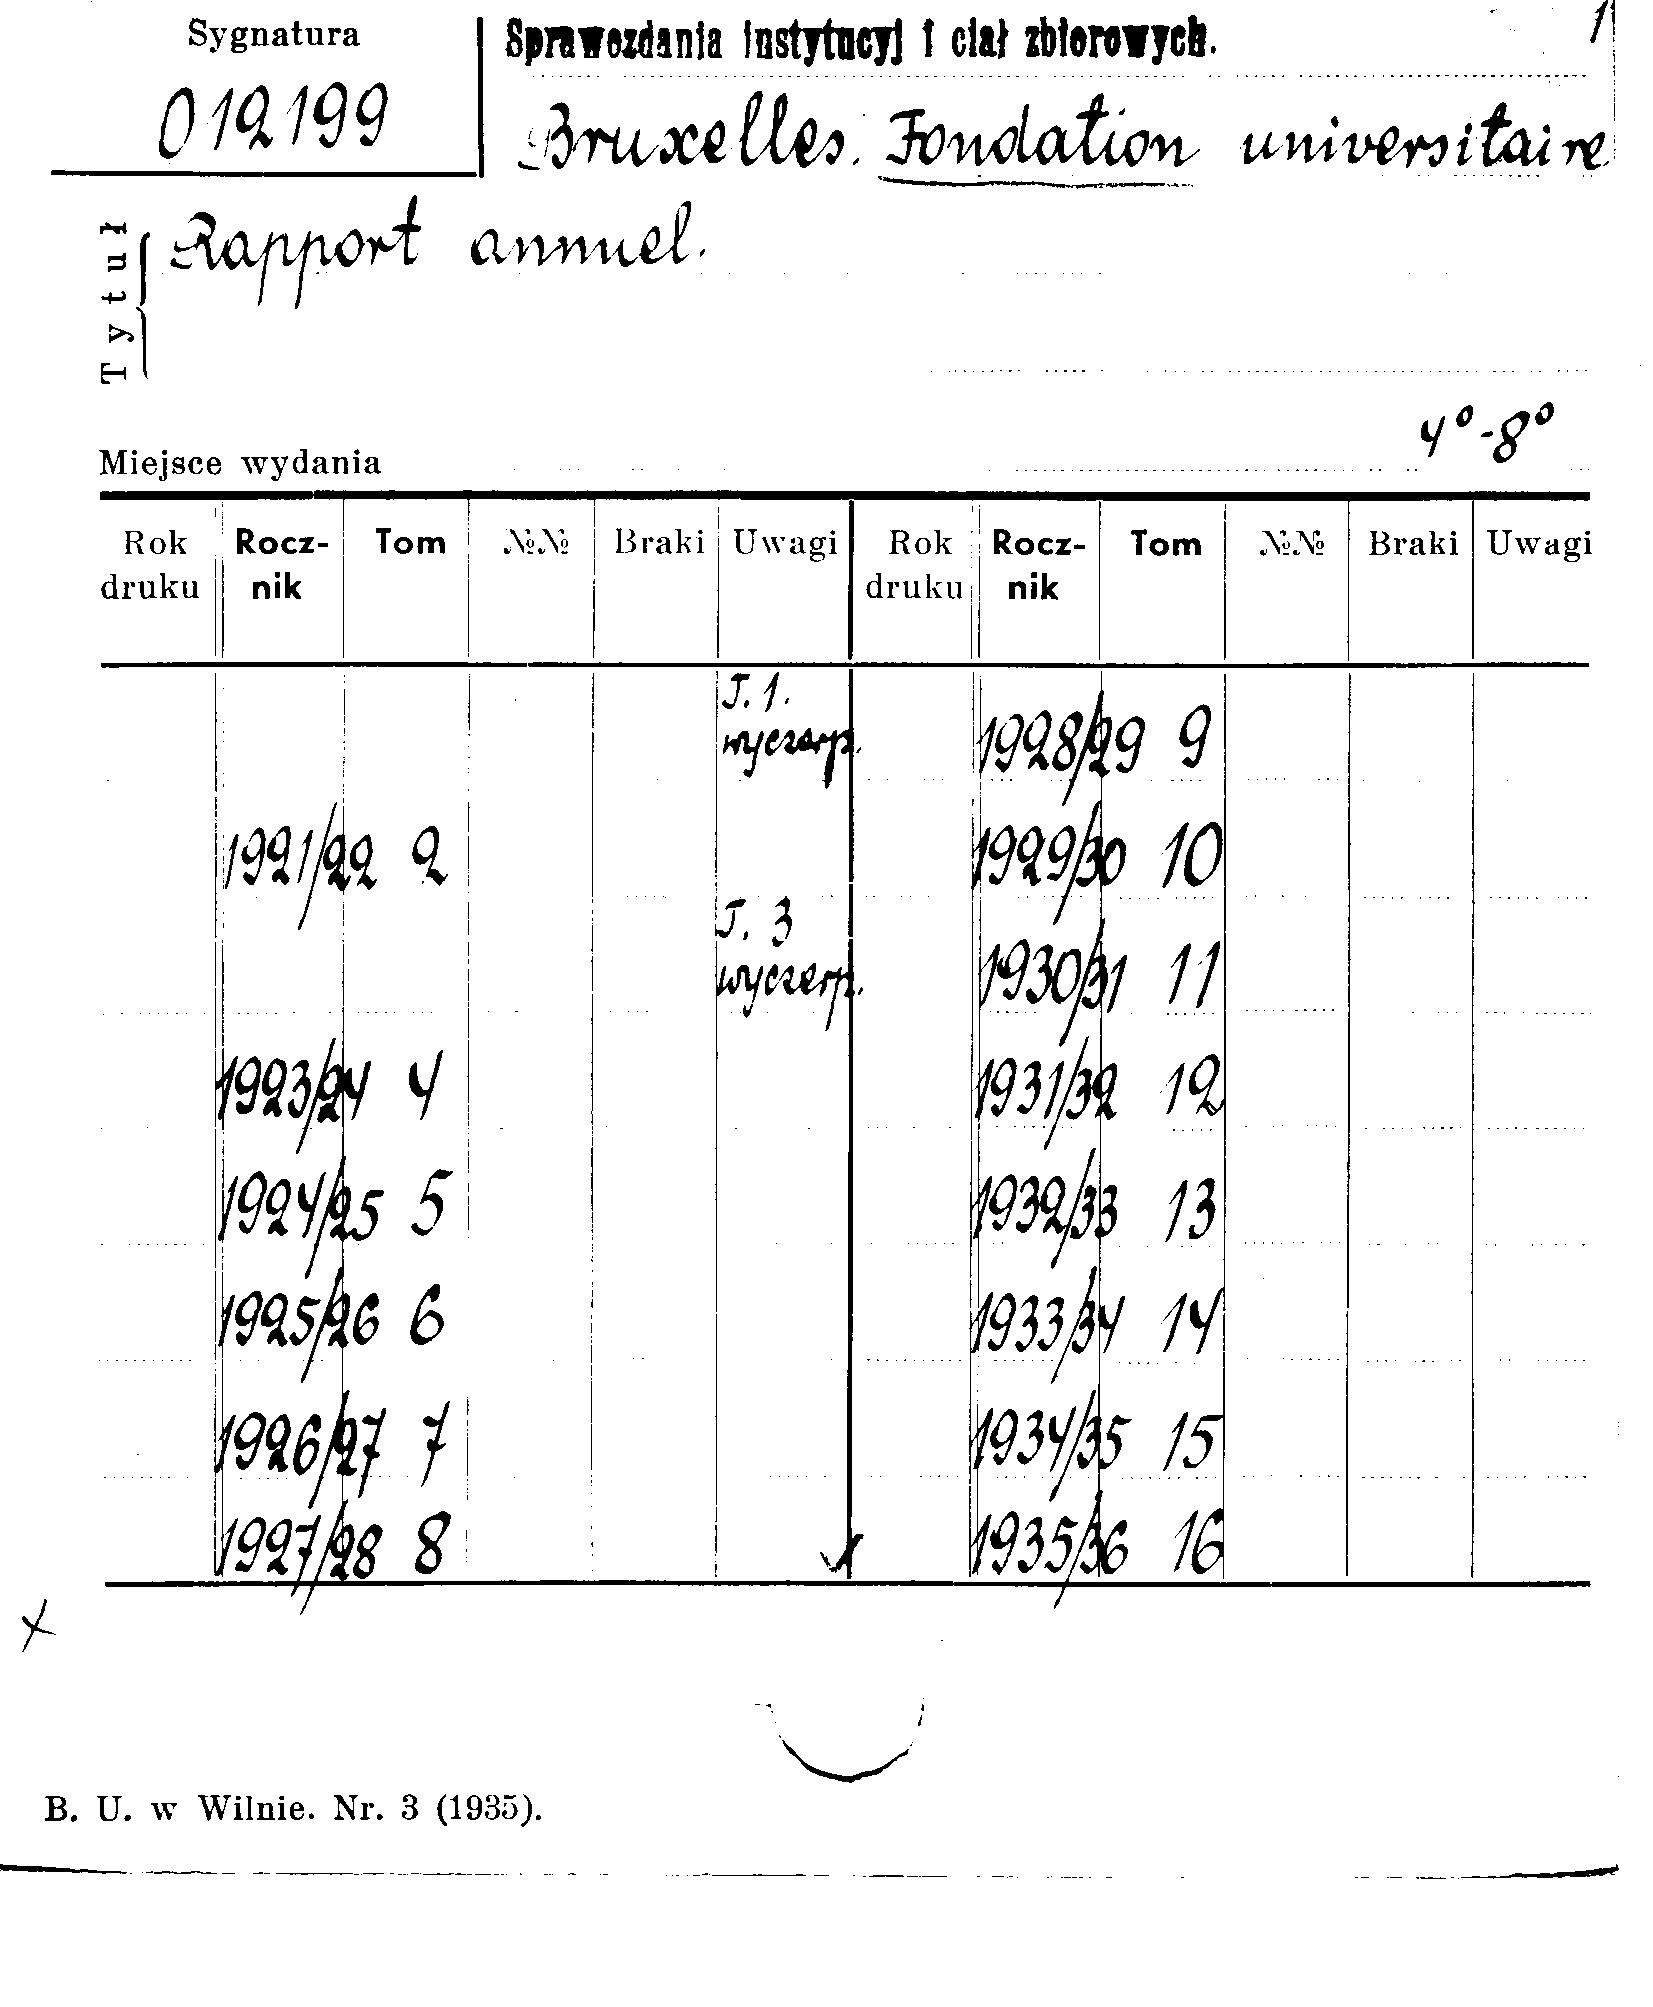 Sygnatura
012199
Sprawozdania instytucyj i ciał zbiorowych.
1
Bruxelles. Fondation universitaire
Tytuł
Rapport annuel.
4°-8°
Miejsce wydania
Rok druku Rocz-nik Tom №№ Braki Uwagi Rok druku Rocz-nik Tom №№ Braki Uwagi
T. 1. wyczerp. 1928/29 9
1921/22 2 1929/30 10
T. 3 wyczerp. 1930/31 11
1923/24 4 1931/32 12
1924/25 5 1932/33 13
1925/26 6 1933/34 14
1926/27 7 1934/35 15
1927/28 8 1935/36 16
B. U. w Wilnie. Nr. 3 (1935).